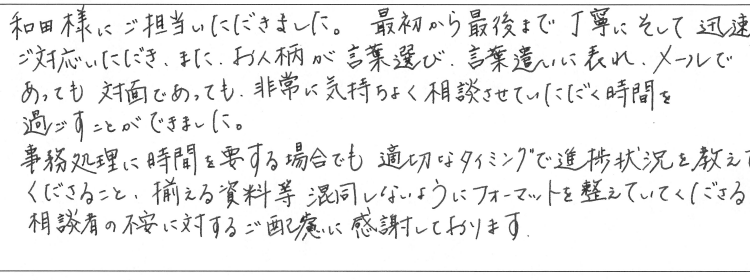 和田様にご担当いただきました。最初から最後まで丁寧にそして迅速
ご対応いただき、また、お人柄が言葉選び、言葉遣いに表れ、メールで
あっても対面であっても、非常に気持ちよく相談させていただく時間を
過ごすことができました。
事務処理に時間を要する場合でも適切なタイミングで進捗状況を教えて
くださること、揃える資料等混同しないようにフォーマットを整えていてくださる
相談者の不安に対するご配慮に感謝しております。